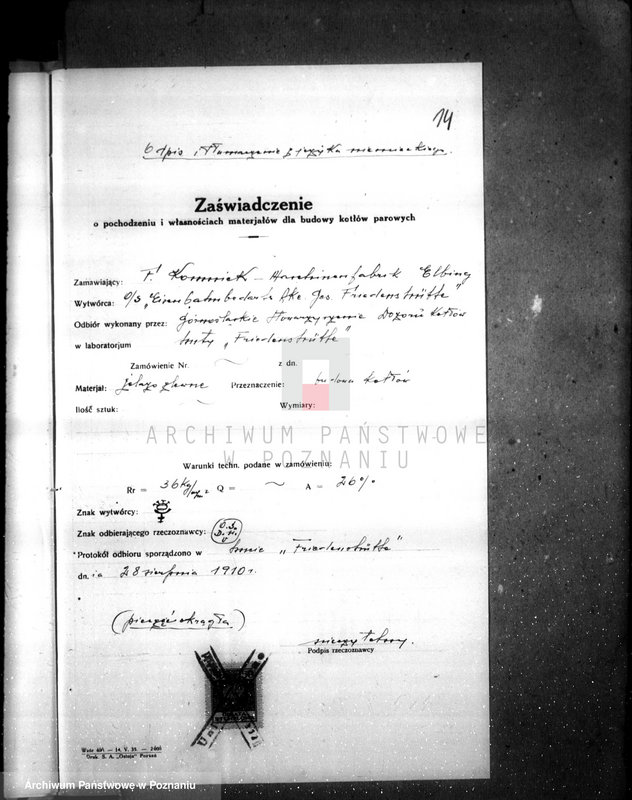 14
Odpis i tłumaczenie z języka niemieckiego.
Zaświadczenie
o pochodzeniu i własnościach materjałów dla budowy kotłów parowych
Zamawiający: F. Komnick - Maschinenfabrik Elbing
Wytwórca: O/S „Eisenbahnbedarfs Akc. Ges. Friedenshütte"
Odbiór wykonany przez: Górnośląskie Stowarzyszenie Dozoru Kotłów
w laboratorjum huty „Friedenshütte"
Zamówienie Nr. ~ z dn.
Materjał: żelazo zlewne Przeznaczenie: budowa kotłów
Ilość sztuk: ~ Wymiary:
ARCHIWUM PAŃSTWOWE
W POZNANIU
Warunki techn. podane w zamówieniu:
Rr = 36 kg/m 2 Q = ~ A = 26%
Znak wytwórcy:
Znak odbierającego rzeczoznawcy:
Protokół odbioru sporządzono w hucie „Friedenshütte"
dnia 28 sierpnia 1910 r.
(pieczęć okrągła)
nieczytelny.
Podpis rzeczoznawcy
Druk. S. A. „Ostoja" Poznań
Archiwum Państwowe w Poznaniu